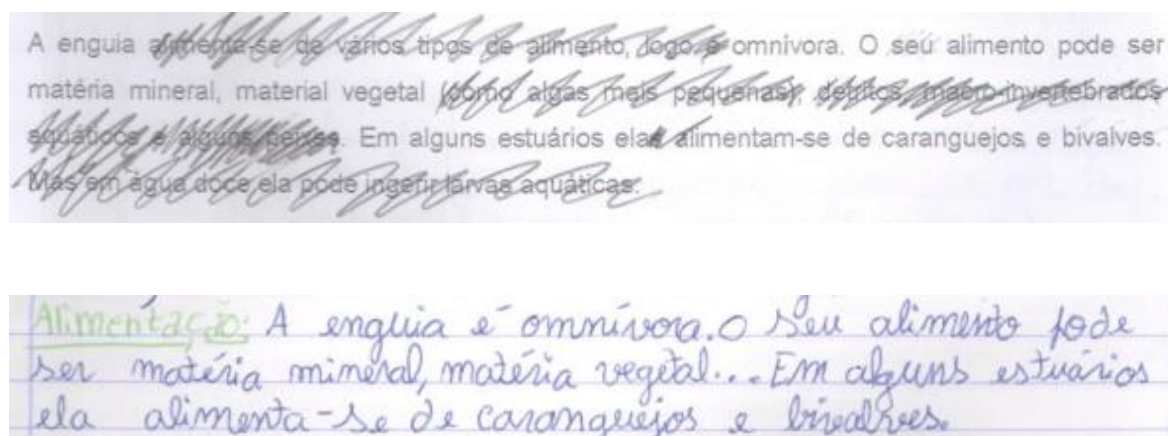 A enguia alimenta-se de vários tipos de alimento, logo é omnívora. O seu alimento pode ser
matéria mineral, material vegetal (como algas mais pequenas), detritos, macro-invertebrados
aquáticos e alguns peixes. Em alguns estuários elas alimentam-se de caranguejos e bivalves.
Mas em água doce ela pode ingerir larvas aquáticas.
Alimentação: A enguia é omnívora. O seu alimento pode
ser matéria mineral, matéria vegetal... Em alguns estuários
ela alimenta-se de caranguejos e bivalves.